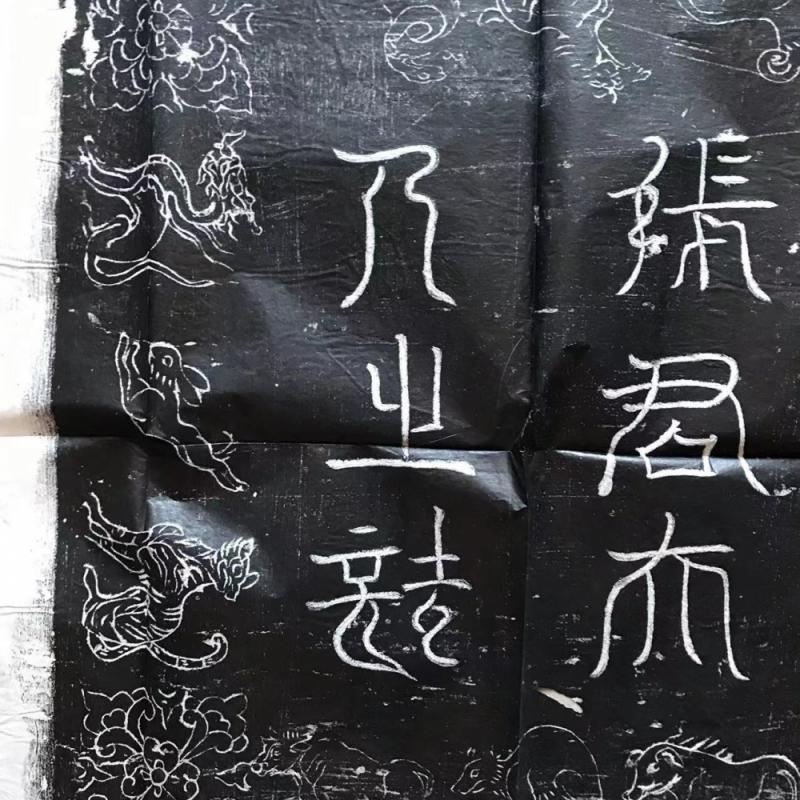 張君夫
人之誌